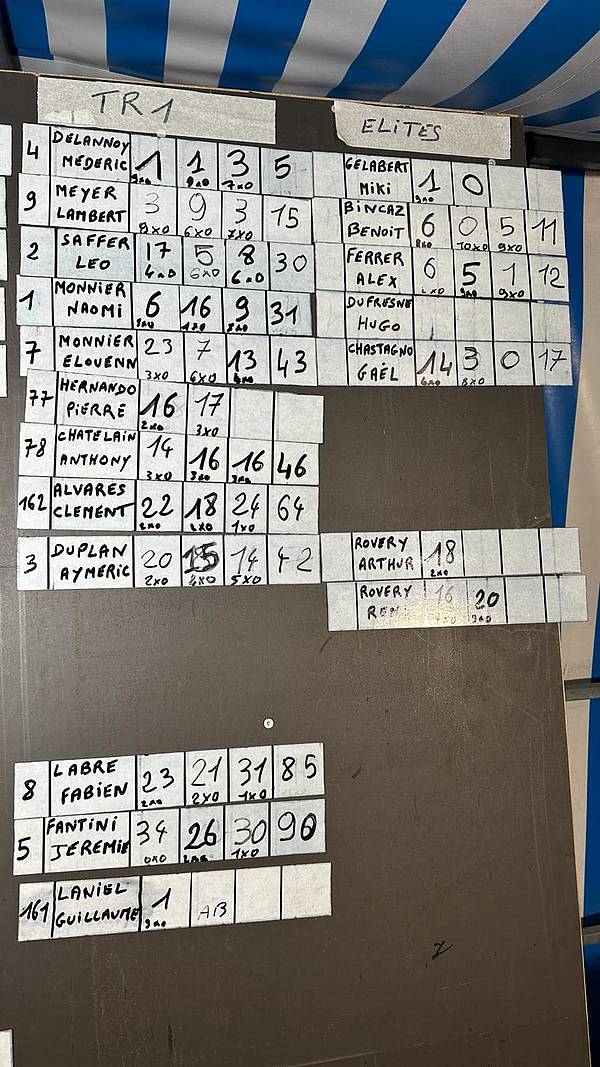 TR1
4 DELANNOY MEDERIC 1 1 3 5
9x0 9x0 7x0
9 MEYER LAMBERT 3 9 3 15
8x0 6x0 7x0
2 SAFFER LEO 17 5 8 30
4x0 6x0 6x0
1 MONNIER NAOMI 6 16 9 31
7 MONNIER ELOUENN 23 7 13 43
3x0 6x0
77 HERNANDO PIERRE 16 17
2x0 3x0
78 CHATELAIN ANTHONY 14 16 16 46
3x0 3x0
162 ALVARES CLEMENT 22 18 24 64
2x0 2x0 1x0
3 DUPLAN AYMERIC 20 15 14 42
2x0 5x0
8 LABRE FABIEN 23 21 31 85
2x0 2x0 1x0
5 FANTINI JEREMIE 34 26 30 90
0x0 1x0
161 LANIEL GUILLAUME 1 AB
9x0
ELITES
GELABERT MIKI 1 0
9x0
BINCAZ BENOIT 6 0 5 11
8x0 10x0 9x0
FERRER ALEX 6 5 1 12
9x0 9x0
DUFRESNE HUGO
CHASTAGNO GAËL 14 3 0 17
6x0 8x0
ROVERY ARTHUR 18
2x0
ROVERY REMI 16 20